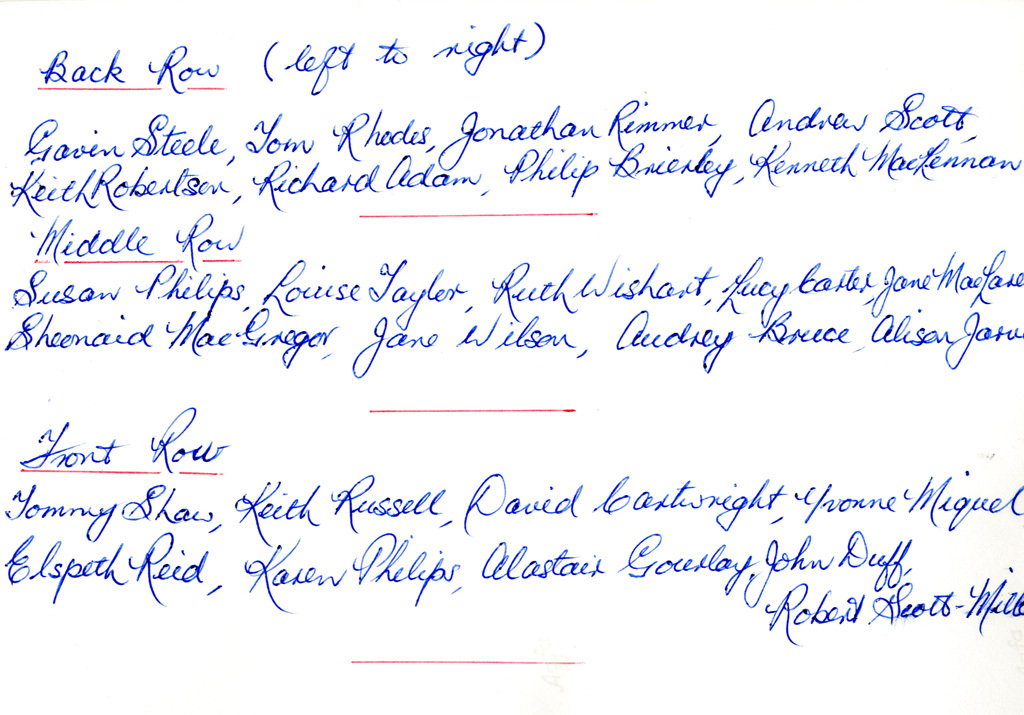 Back Row (left to right)
Gavin Steele, Tom Rhodes, Jonathan Rimmer, Andrew Scott,
Keith Robertson, Richard Adam, Philip Brierley, Kenneth MacLennan
Middle Row
Susan Philips, Louise Taylor, Ruth Wishart, Lucy Carter, Jane MacLare
Sheonaid MacGregor, Jane Wilson, Audrey Bruce, Alison Jarv
Front Row
Tommy Shaw, Keith Russell, David Cartwright, Yvonne Miquel
Elspeth Reid, Karen Philips, Alastair Gourlay, John Duff,
Robert Scott-Mill